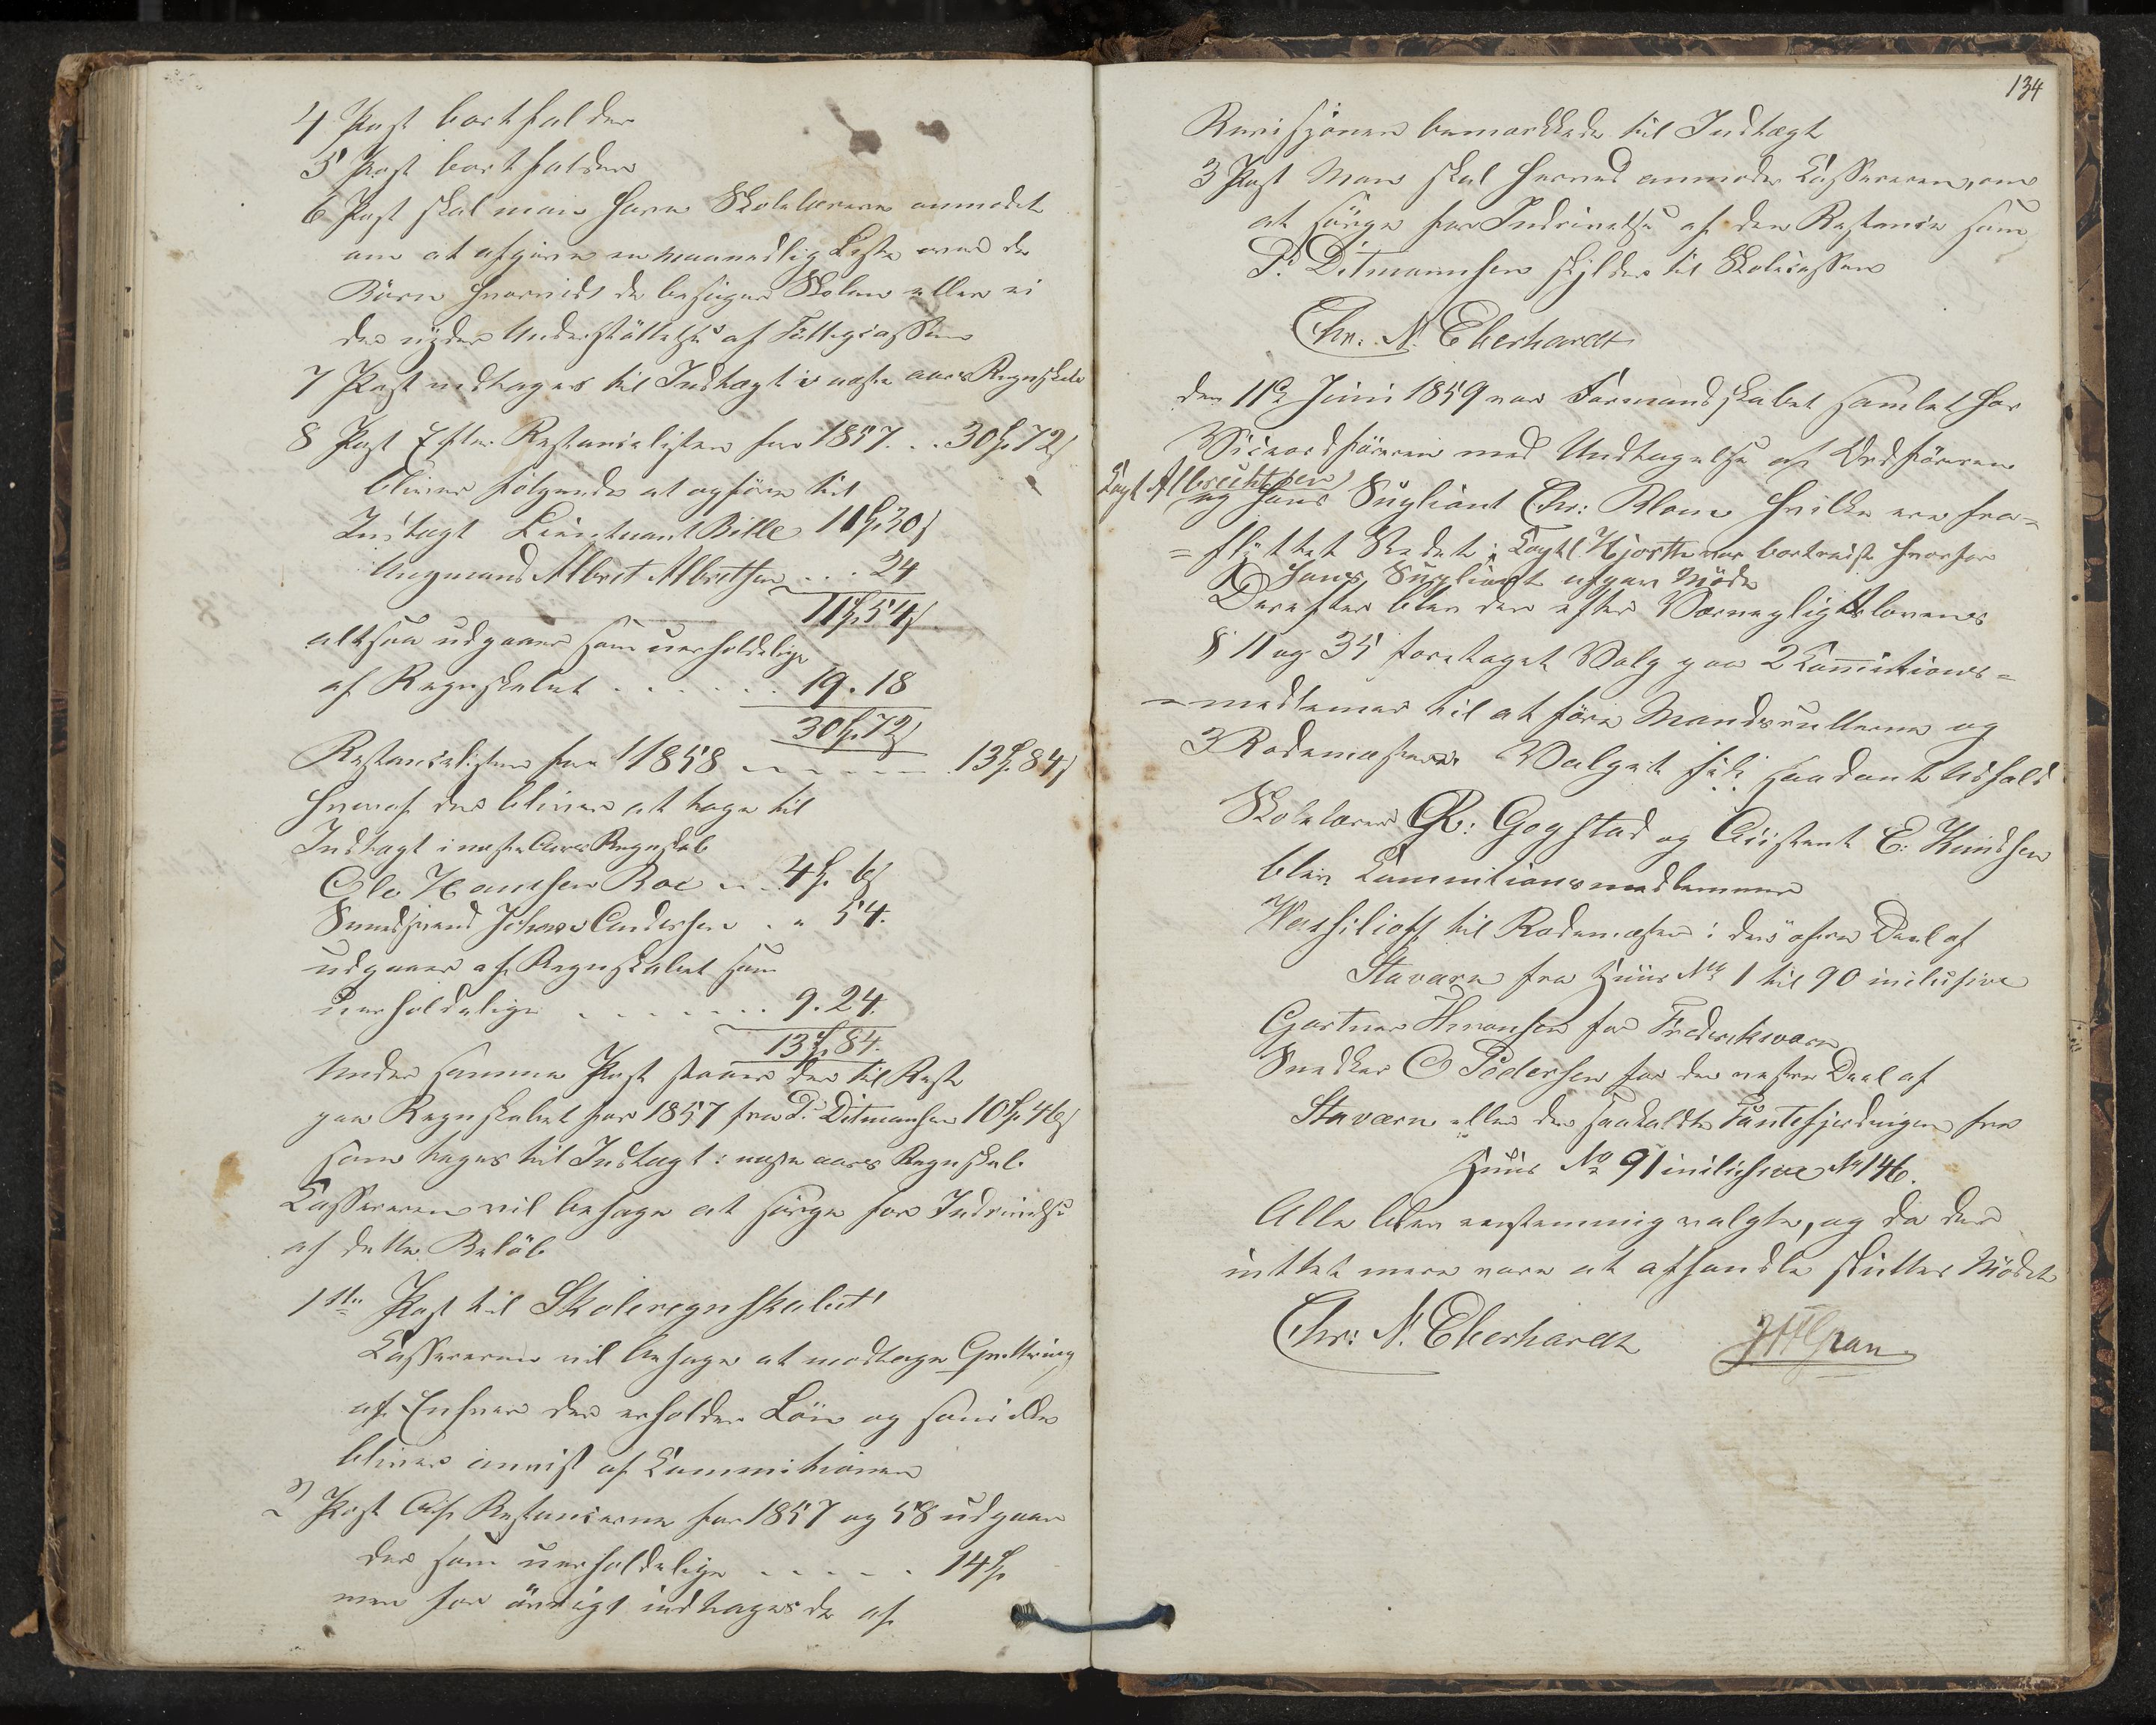 4 Post bortfalder
5 Post bortfalder
6 Post skal man have Skolelærerne anmodet
om at afgive en maanedlig Liste over de
Börn hvorvidt de besöger Skolen eller ei
der nyder Understöttelse af Fattigcassen
7 Post indtages til Indtægt i næste aars Regnskab
8 Post Efter Restancelisten for 1857 . . 30 72
bliver fölgende at opföre til
Indtægt Lieutnant Bille 11 30
Ungmand Albret Albretsen . . . 24
11 54
altsaa udgaaer som uerholdelige
af Regnskabet . . . . . . 19 . 18
30 72
Restancelisten for 1858 - - - - - - 13 84
hvoraf der bliver at tage til
Indtægt i næste Aars Regnskab
Ole Hansen Roe . . 4 6
Johan Andersen . " 54.
udgaaer af Regnskabet som
uerholdelige . . . . . . . 9.24.
13 84.
Under samme Post staaer der til Rest
paa Regnskabet for 1857 fra P. Ditmansen 10 46
som tages til Indtægt i næste aars Regnskab.
Cassereren vil behage at sörge for Inddrivelse
af dette Belöb
1ste Post til Skoleregnskabet
Cassereren vil behage at modtage Qvittering
af Enhver der erholder Lön og som ikke
bliver anvist af Commitionen
2 Post Af Restancerne for 1857 og 58 udgaar
der som uerholdelige - - - - - 14
men for övrigt indtages de af
134
Revisjonen bemærkede til Indtægt
3 Post Man skal herved anmode Cassereren, om
at sörge for Inddrivelse af den Restance som
P. Ditmannsen skylder til Skolecassen
Chr. N. Eberhardt
den 11te Juni 1859 var Formandskabet samlet hos
Viceordföreren med Undtagelse af Ordföreren
Capt Albrechtsen
og hans Supliant Chr: Blom hvilke ere fra=
=flyttet Stedet; Captl Hjorth var bortreist hvorfor
hans Supliant afgav Möde
Derefter blev der efter Værnepligtslovens
§ 11 og 35 foretaget Valg paa 2 Com̅itions=
=medlemer til at före Mandsrullerne og
3 Rodemestere Valget fik saadant Udfald
Skolelærer R: Gogstad og Assistent E: Knudsen
blev Commitionsmedlemmer
Wassilioff til Rodemester i den Deel af
Staværn fra Huus No 1 til 90 inclusive
Gartner for Frederiksværn
Snedker O Pedersen for den vestre Deel af
Staværn eller den saakaldte Tantefjerdingen fra
Huus No 91 inclusive No 146.
Alle blev eenstemmig valgte, og da der
inttet mere vare at afhandle sluttes Mödet
Chr: N. Eberhardt Gran